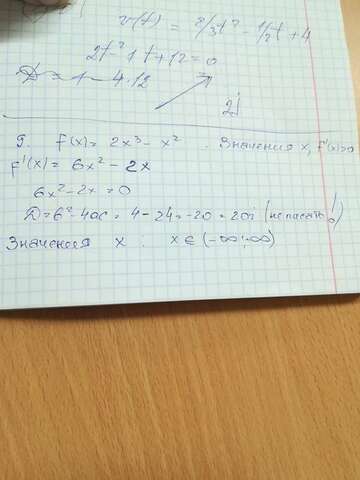 v(t) = 2/3t³ - 1/2t + 4
2t² 1t + 12 = 0
D = 1 - 4·12
2i
9. F(x) = 2x³ - x². Значения x, F'(x)>0
F'(x) = 6x² - 2x
6x² - 2x = 0
D = b² - 4ac = 4 - 24 = -20 = 20i (не писать!)
Значения x . x ∈ (-∞;∞)